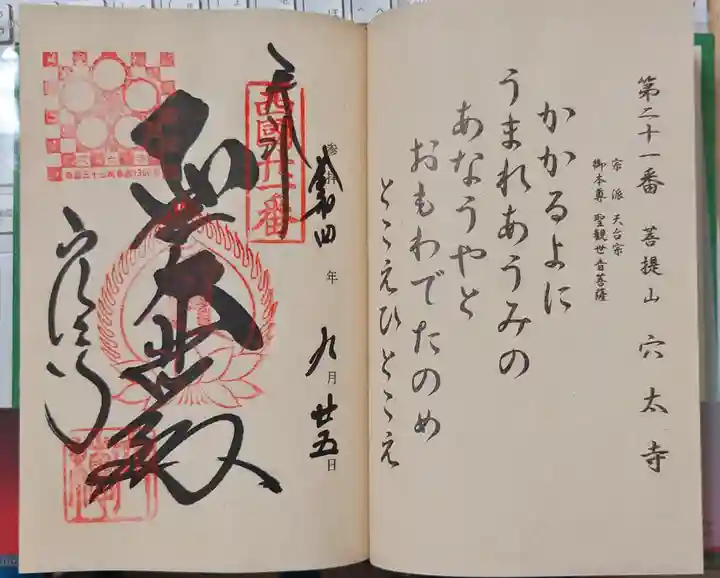 第二十一番 菩提山 穴太寺
宗派 天台宗
御本尊 聖観世音菩薩
かかるよに
うまれあうみの
あなうやと
おもわでたのめ
とこえひとこえ
参拝 令和四年九月廿五日
西国廿一番
聖大悲殿
穴太寺